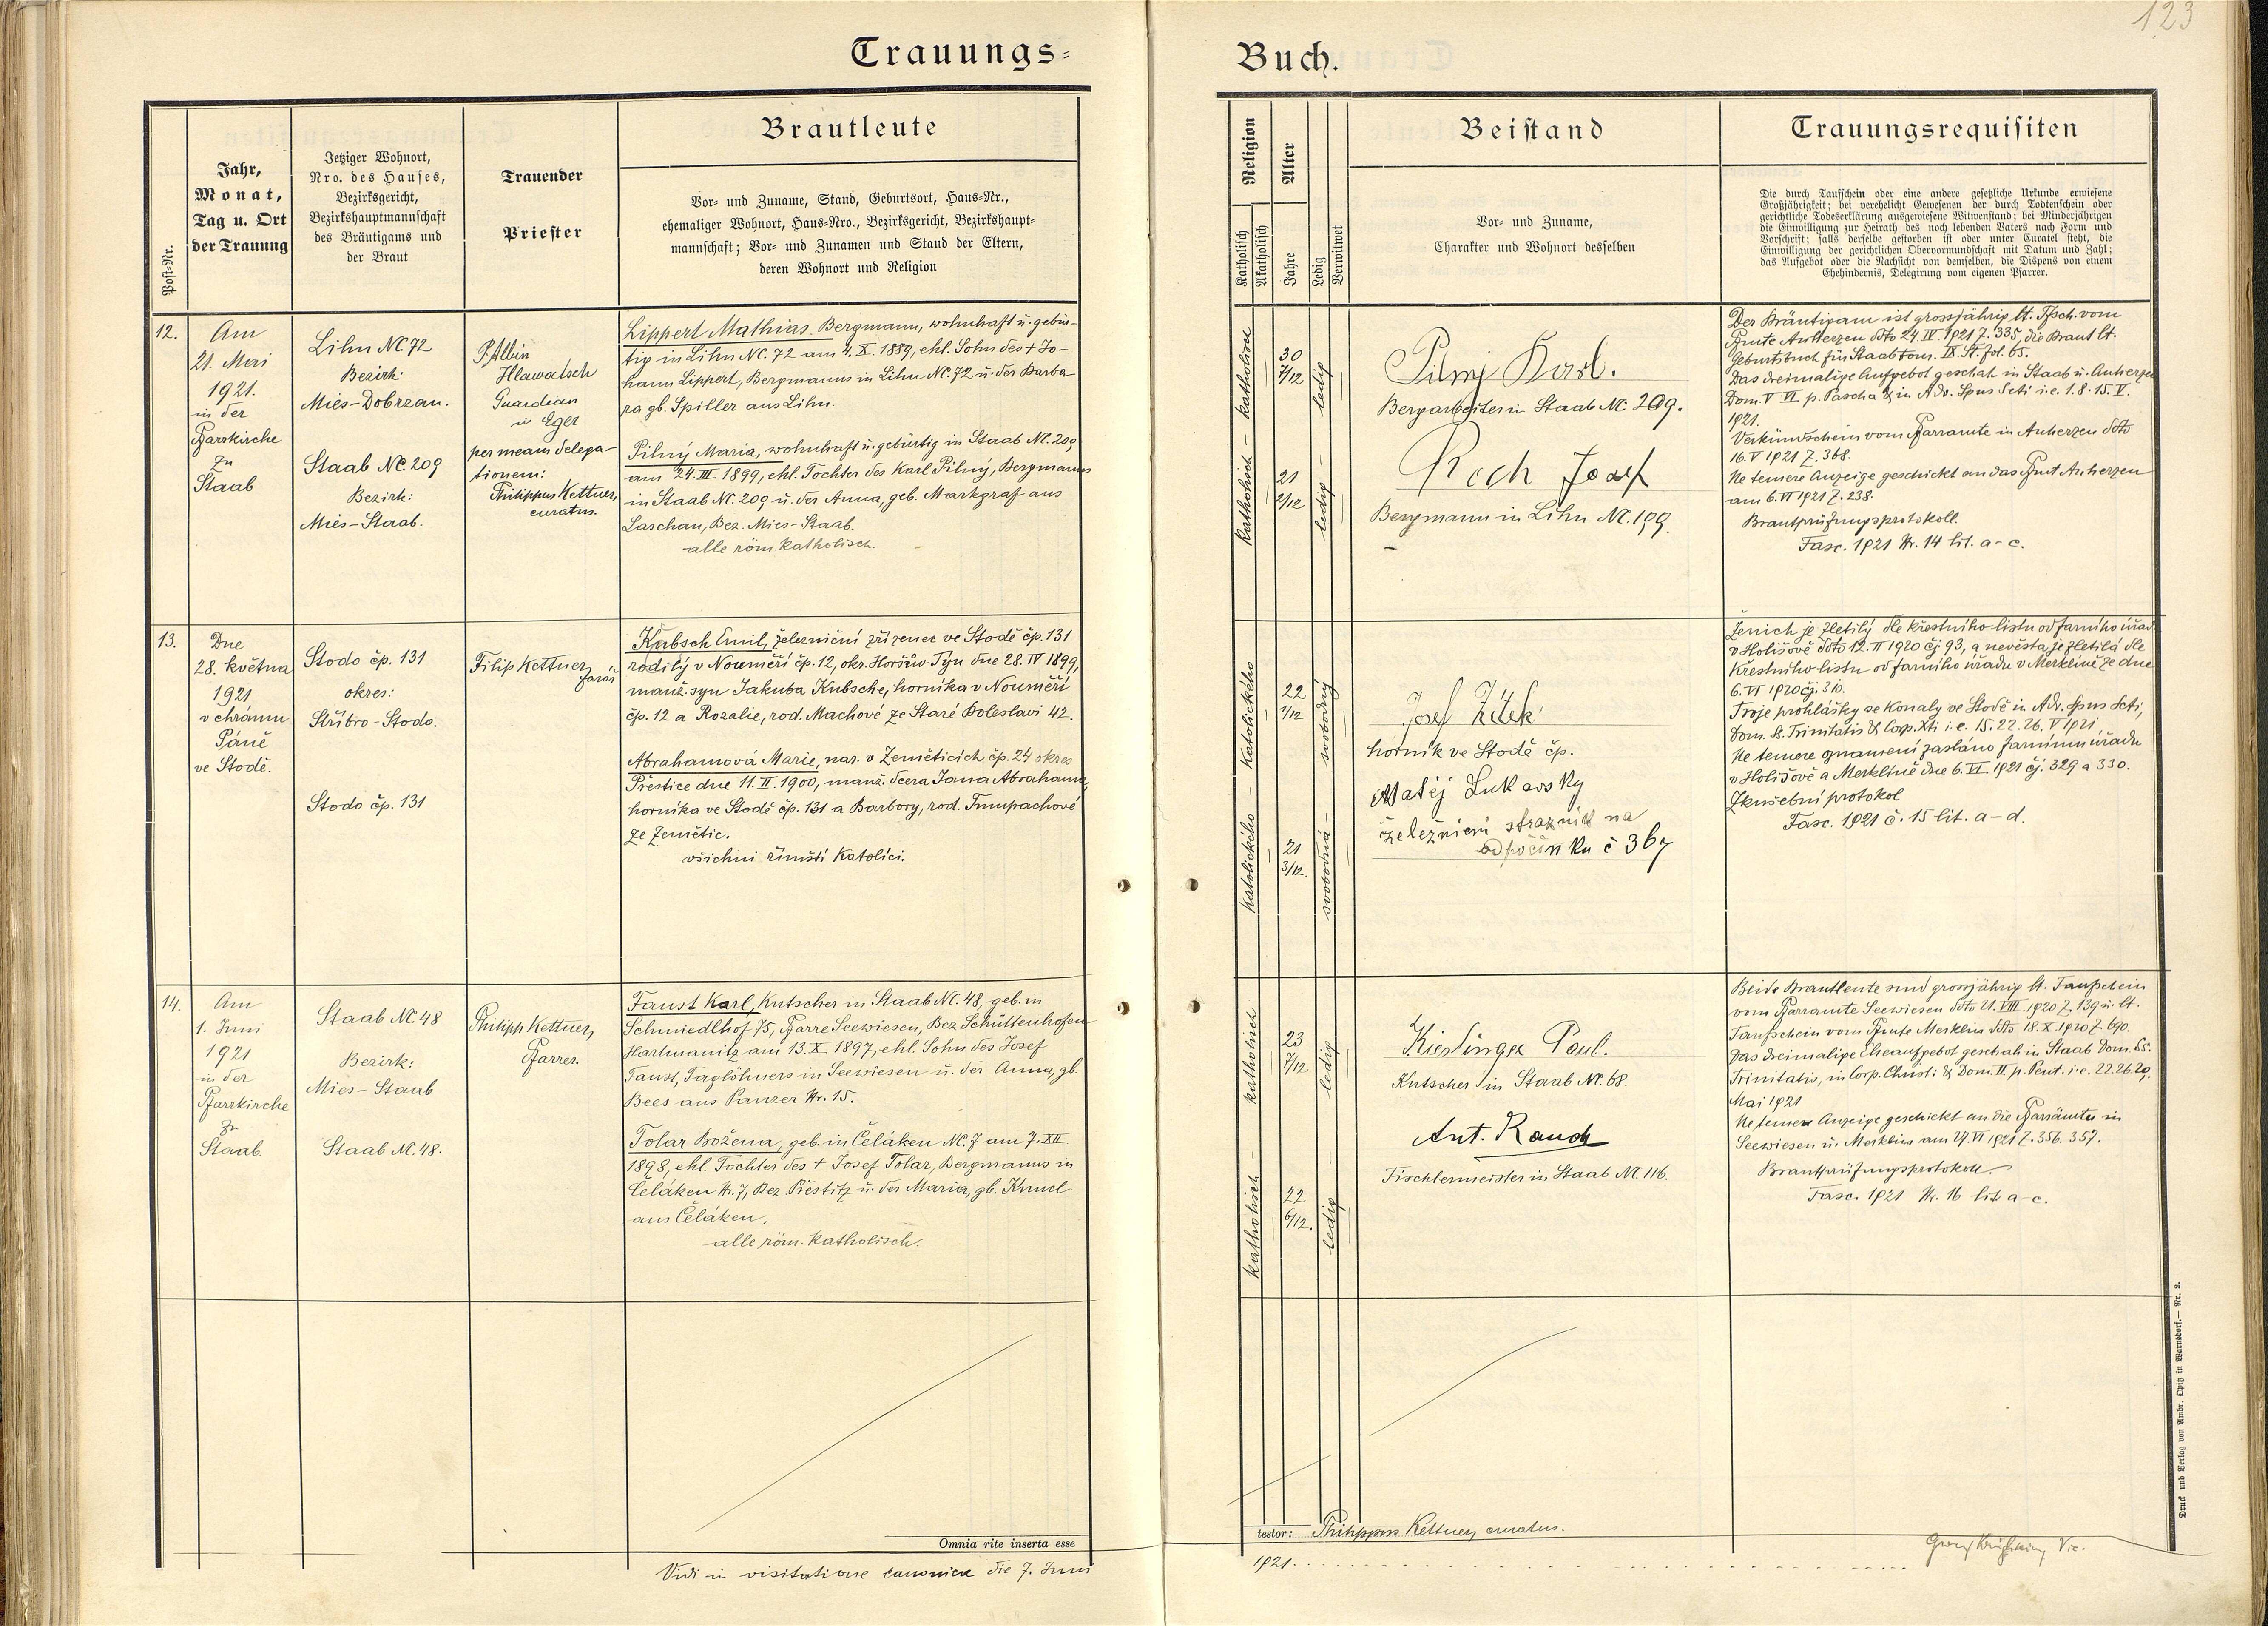 123
Trauungs-
Buch.
Post-Nr.
Jahr,
Monat,
Tag u. Ort
der Trauung
Jetziger Wohnort,
Nro. des Hauses,
Bezirksgericht,
Bezirkshauptmannschaft
des Bräutigams und
der Braut
Trauender
Priester
Brautleute
Vor- und Zuname, Stand, Geburtsort, Haus-Nr.,
ehemaliger Wohnort, Haus-Nro., Bezirksgericht, Bezirkshaupt-
mannschaft; Vor- und Zunamen und Stand der Eltern,
deren Wohnort und Religion
Religion
Katholisch
Akatholisch
Alter
Jahre
Ledig
Verwitwet
Beistand
Vor- und Zuname,
Charakter und Wohnort desselben
Trauungsrequisiten
Die durch Taufschein oder eine andere gesetzliche Urkunde erwiesene
Großjährigkeit; bei verehelicht Gewesenen der durch Todtenschein oder
gerichtliche Todeserklärung ausgewiesene Witwenstand; bei Minderjährigen
die Einwilligung zur Heirath des noch lebenden Vaters nach Form und
Vorschrift; falls derselbe gestorben ist oder unter Curatel steht, die
Einwilligung der gerichtlichen Obervormundschaft mit Datum und Zahl;
das Aufgebot oder die Nachsicht von demselben, die Dispens von einem
Ehehindernis, Delegirung vom eigenen Pfarrer.
12.
Am
21. Mai
1921.
in der
Pfarrkirche
zu
Staab
Lihn NC. 72
Bezirk:
Mies-Dobrzan.
Staab NC. 209
Bezirk:
Mies-Staab.
P. Albin
Hlawatsch
Guardian
in Eger
per meam delega-
tionem:
Philippus Kettner,
curatus.
Lippert Mathias. Bergmann, wohnhaft u. gebür-
tig in Lihn NC. 72 am 4. X. 1889, ehl. Sohn des + Jo-
hann Lippert, Bergmanns in Lihn NC. 72 u. der Barba
ra gb. Spiller aus Lihn.
Pilný Maria, wohnhaft u. gebürtig in Staab NC. 209
am 24. III. 1899, ehl. Tochter des Karl Pilný, Bergmanns
in Staab NC. 209 u. der Anna, geb. Markgraf aus
Laschan, Bez. Mies-Staab.
alle röm. katholisch.
katholisch - katholisch
30
7/12
21
2/12
ledig - ledig
Pilný Karl.
Bergarbeiter in Staab NC. 209.
Rech Josef
Bergmann in Lihn NC. 199.
Der Bräutigam ist grossjährig lt. Tfsch. vom
Pfmte Auherzen ddto 24. IV. 1921 Z. 335, die Braut lt.
Geburtsbuch für Staab tom. IX. St. fol. 65.
Das dreimalige Aufgebot geschah in Staab u. Auherzen
Dom. V. VI. p. Pascha & in Adv. Spus Scti i. e. 1. 8. 15. V.
1921.
Verkündschein vom Pfarramte in Auherzen ddto
16. V 1921 Z. 368.
Ne temere Anzeige geschickt an das Pfmt Auherzen
am 6. VI 1921 Z. 238.
Brautprüfungsprotokoll.
Fasc. 1921 Nr. 14 lit. a-c.
13.
Dne
28. května
1921
v chrámu
Páně
ve Stodě.
Stodo čp. 131
okres:
Stříbro-Stodo.
Stodo čp. 131
Filip Kettner,
farář
Kubsch Emil, železniční zřízenec ve Stodě čp. 131
rodilý v Nouměří čp. 12, okr. Horšův Týn dne 28. IV 1899,
manž. syn Jakuba Kubsche, horníka v Nouměří
čp. 12 a Rozalie, rod. Machové ze Staré Boleslavi 42.
Abrahamová Marie, nar. v Zeměticích čp. 24 okres
Přeštice dne 11. II. 1900, manž. dcera Jana Abrahama,
horníka ve Stodě čp. 131 a Barbory, rod.
ze Zemětic.
všichni římští katolíci.
katolického - katolického
22
1/12
21
3/12.
svobodná - svobodný
Josef Žítek
horník ve Stodě čp.
Matěj Lukavsky
železniční strážník na
odpočinku č 367
Ženich je zletilý dle křestního listu od farního úřadu
v Holišově ddto 12. II 1920 čj 93, a nevěsta je zletilá dle
křestního listu od farního úřadu v Merklíně ze dne
6. VI 1920 čj. 310.
Troje prohlášky se konaly ve Stodě in Adv. Spus Scti,
Dom. S. Trinitatis & Corp. Xti i. e. 15. 22. 26. V 1921
Ne temere oznámení zasláno farnímu úřadu
v Holišově a Merklíně dne 6. VI. 1921 čj. 329 a 330.
Zkušební protokol
Fasc. 1921 č. 15 lit. a-d.
14.
Am
1. Juni
1921
in der
Pfarrkirche
zu
Staab.
Staab NC. 48
Bezirk:
Mies-Staab
Staab NC. 48.
Philipp Kettner,
Pfarrer.
Faust Karl, Kutscher in Staab NC. 48, geb. in
Schmiedlhof 75, Pfarre Seewiesen, Bez Schüttenhofen
Hartmanitz am 13. X. 1897, ehl. Sohn des Josef
Faust, Taglöhners in Seewiesen u. der Anna, gb.
Bees aus Panzer Nr. 15.
Tolar Božena, geb. in Čeláken NC. 7 am 7. XII.
1898, ehl. Tochter des + Josef Tolar, Bergmanns in
Čeláken Nr. 7, Bez. Přestitz u. der Maria, gb.
aus Čeláken.
alle röm. katholisch.
katholisch - katholisch
23
7/12
22
6/12.
ledig - ledig
Kieslinger Paul.
Kutscher in Staab NC. 68.
Ant. Rauch
Tischlermeister in Staab NC. 116.
Beide Brautleute sind grossjährig lt. Taufschein
vom Pfarramte Seewiesen ddto 21. VIII. 1920 Z. 139 u. lt.
Taufschein vom Pfmte Merklin ddto 18. X. 1920 Z. 690.
Das dreimalige Eheaufgebot geschah in Staab Dom. SS.
Trinitatis, in Corp. Christi & Dom. II. p. Pent. i. e. 22. 26. 29.
Mai 1921
Ne temere Anzeige geschickt an die Pfarrämter in
Seewiesen u. Merklin am 24. VI 1921 Z. 356. 357.
Brautprüfungsprotokoll
Fasc. 1921 Nr. 16 lit a-c.
Omnia rite inserta esse
testor: Philippus Kettner, curatus.
Vidi in visitatione canonica die 7. Juni
1921.
Vic.
Druck und Verlag von Ambr. Opitz in Warnsdorf.— Nr. 2.